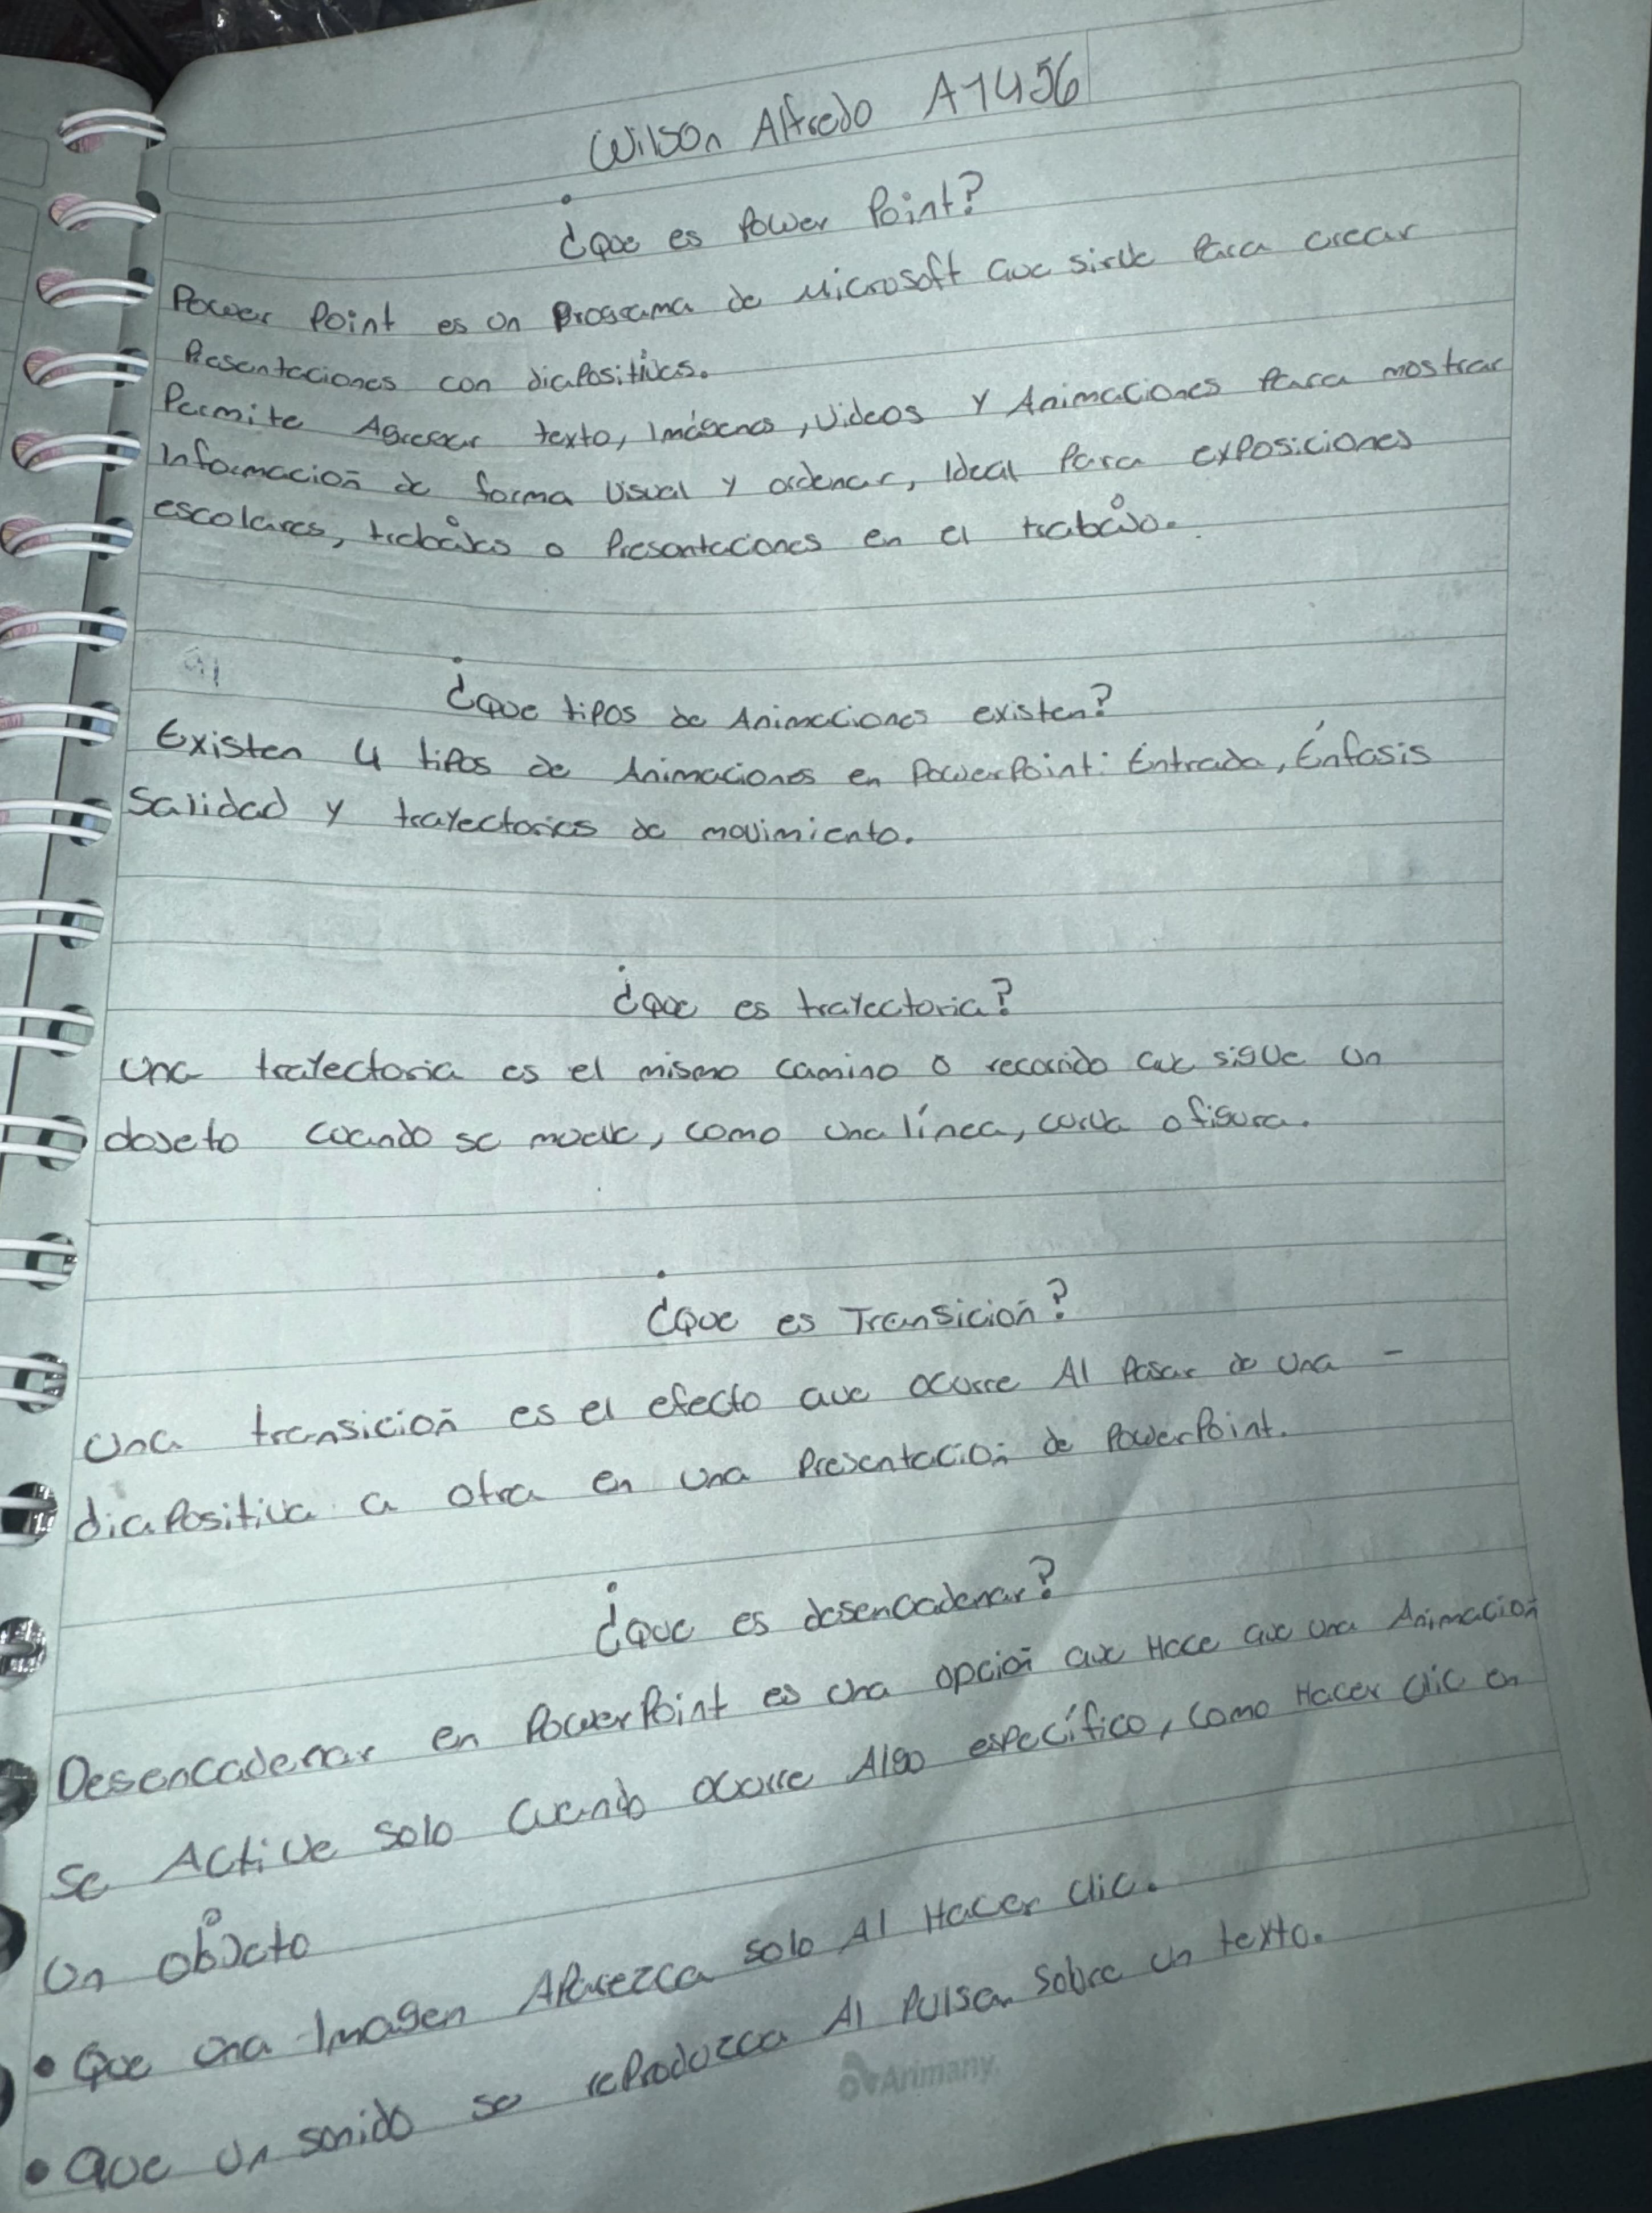 Wilson Alfredo A1456
¿Que es Power Point?
Power Point es un Programa de Microsoft que sirve Para crear
Presentaciones con diapositivas.
Permite Agregar texto, Imágenes, Videos y Animaciones Para mostrar
Información de forma Visual y ordenar, Ideal Para exposiciones
escolares, trabajos o Presentaciones en el trabajo.
¿Que tipos de Animaciones existen?
Existen 4 tipos de Animaciones en PowerPoint: Entrada, Énfasis
Salidad y trayectorias de movimiento.
¿Que es trayectoria?
Una trayectoria es el mismo camino o recorrido que sigue un
dojeto cuando se mueve, como una línea, curva o figura.
¿Que es Transición?
Una transición es el efecto que ocurre Al Pasar de una -
diapositiva a otra en una Presentación de PowerPoint.
¿Que es desencadenar?
Desencadenar en PowerPoint es una opción que Hace que una Animación
se Active solo cuando ocurre Algo específico, como Hacer clic en
Un objeto
• Que una Imagen Aparezca solo Al Hacer clic.
• Que un sonido se reproduzca Al Pulsar sobre un texto.
Arimany